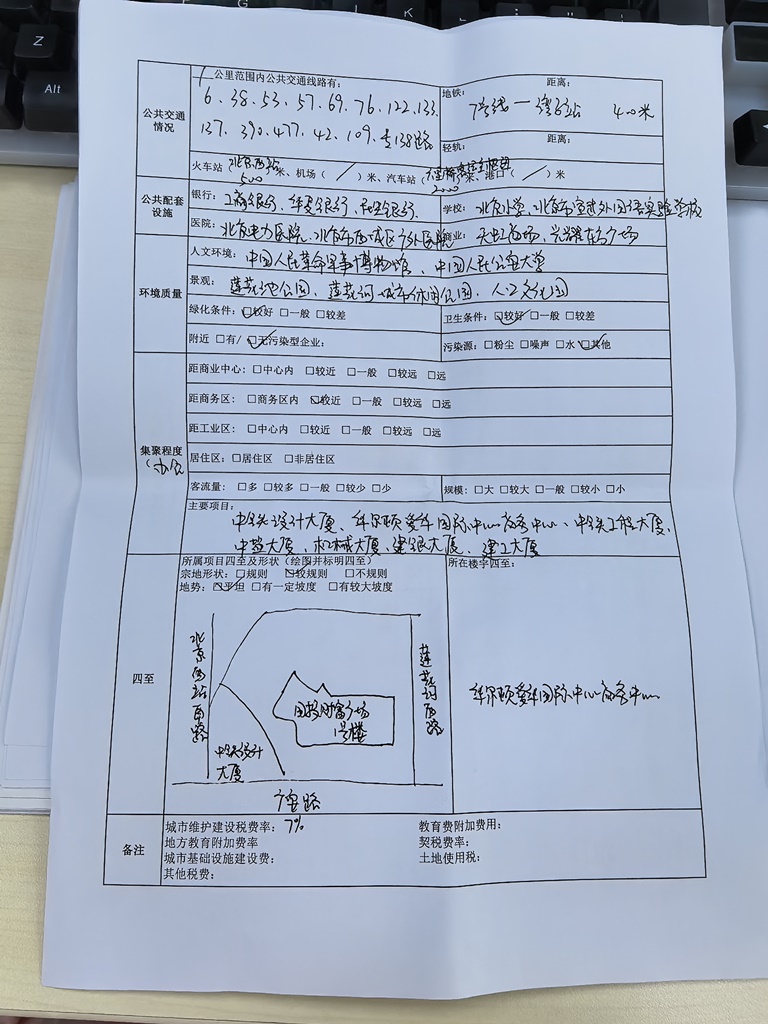 Z
Alt
公共交通情况
1公里范围内公共交通线路有:
6、38、53、57、69、76、122、133
137、390、477、42、109、专138路
地铁: 距离:
7号线— 湾子站 400米
轻轨: 距离:
火车站(北京西站500)米、机场(/)米、汽车站(2000)米、港口(/)米
公共配套设施
银行:工商银行、华夏银行、民生银行、
学校:北京小学、北京市宣武外国语实验学校
医院:北京电力医院、北京市西城区广外医院
商业:天虹商场、
环境质量
人文环境:中国人民革命军事博物馆、中国人民公安大学
景观:莲花池公园、莲花河城市休闲公园、人口文化园
绿化条件:□较好 □一般 □较差
卫生条件:□较好 □一般 □较差
附近 □有/ □无污染型企业:
污染源:□粉尘 □噪声 □水 □其他
集聚程度
(办公
距商业中心:□中心内 □较近 □一般 □较远 □远
距商务区:□商务区内 □较近 □一般 □较远 □远
距工业区:□中心内 □较近 □一般 □较远 □远
居住区:□居住区 □非居住区
客流量:□多 □较多 □一般 □较少 □少
规模:□大 □较大 □一般 □较小 □小
主要项目:
中铁设计大厦、华尔顿爱华国际中心商务中心、中铁工程大厦、
中盐大厦、机械大厦、建银大厦、建工大厦
四至
所属项目四至及形状(绘图并标明四至)
宗地形状:□规则 □较规则 □不规则
地势:□平坦 □有一定坡度 □有较大坡度
北京西站南路
莲花河西路
国投财富广场
1号楼
中铁设计
大厦
广安路
所在楼宇四至:
华尔顿爱华国际中心商务中心
备注
城市维护建设税费率:7%
教育费附加费用:
地方教育附加费率
契税费率:
城市基础设施建设费:
土地使用税:
其他税费: